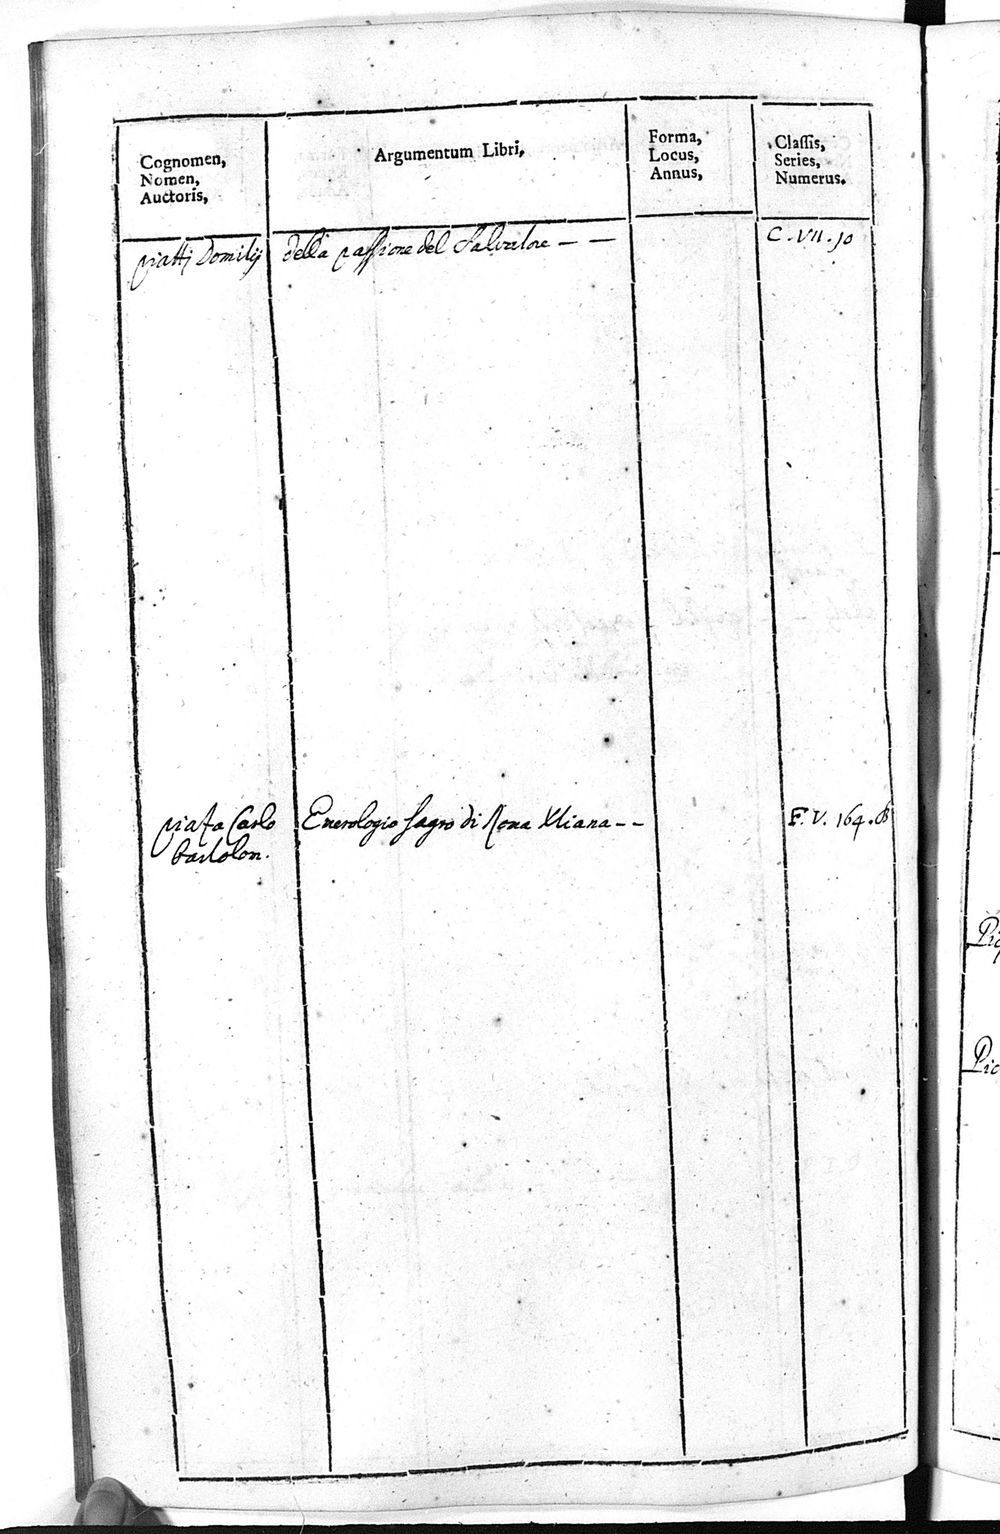 Cognomen,
Nomen,
Auctoris,
Argumentum Libri,
Forma,
Locus,
Annus,
Classis,
Series,
Numerus.
piatti Domitij della passione del Salvatore – – C. VII. 10
piazza Carlo Emerologio sagro di Roma Xtiana – – F. V. 164. B
bartolom.
Pic